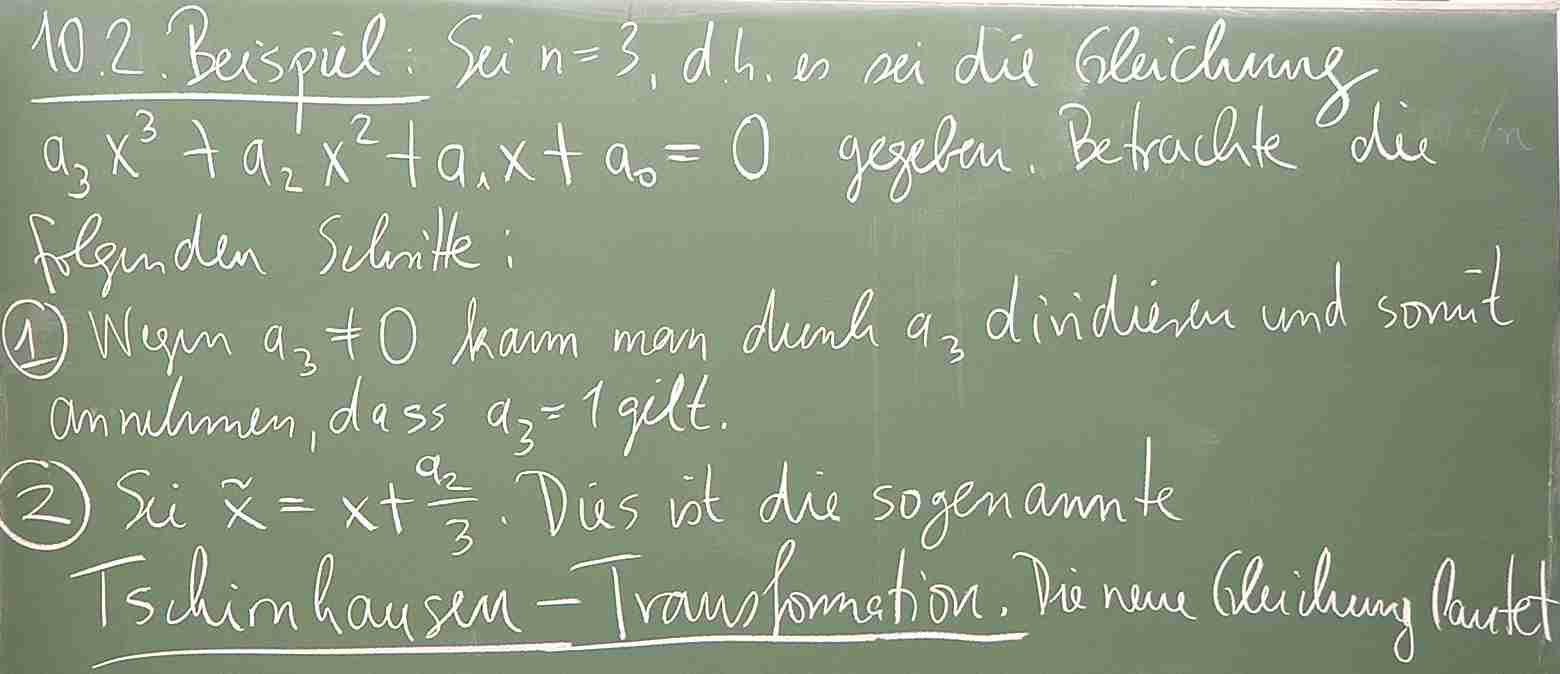 10.2. Beispiel: Sei n=3, d.h. es sei die Gleichung
a₃x³ + a₂x² + a₁x + a₀ = 0 gegeben. Betrachte die
folgenden Schritte:
① Wegen a₃ ≠ 0 kann man durch a₃ dividieren und somit
annehmen, dass a₃ = 1 gilt.
② Sei x̃ = x + a₂/3. Dies ist die sogenannte
Tschirnhausen-Transformation. Die neue Gleichung lautet